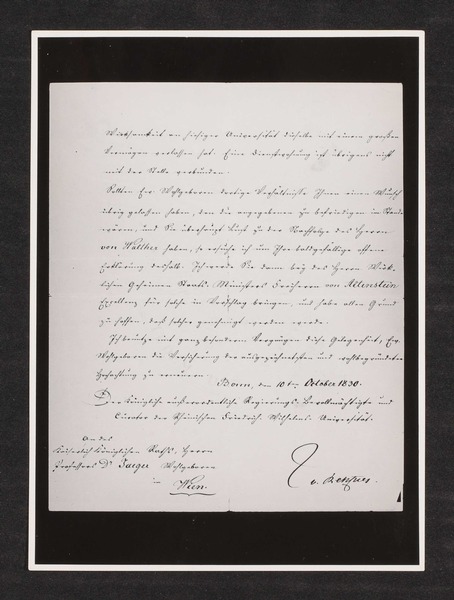 Wirksamkeit an hiesiger Universität dieselbe mit einem großen
Vermögen verlassen hat. Eine Dienstwohnung ist übrigens nicht
mit der Stelle verbunden.
Sollten Ew. Wohlgeboren dortige Verhältnisse Ihnen einen Wunsch
übrig gelassen haben, den die angegebenen zu befriedigen im Stande
wären, und Sie überhaupt Lust zu der Nachfolge des Herrn
von Walther haben, so ersuche ich um Ihre baldgefällige offene
Erklärung deshalb. Ich werde Sie dann bey des Herrn Wirk-
lichen Geheimen Staats-Ministers Freiherrn von Altenstein
Excellenz für solche in Vorschlag bringen, und habe allen Grund
zu hoffen, daß solcher genehmigt werden werde.
Ich benutze mit ganz besonderem Vergnügen diese Gelegenheit, Ew.
Wohlgeboren die Versicherung der ausgezeichnetsten und wohlbegründeten
Hochachtung zu erneuern.
Bonn, den 10ten October 1830.
Der Königliche außerordentliche Regierungs-Bevollmächtigte und
Curator der Rheinischen Friedrich-Wilhelms-Universität.
An des
Kaiserlich Königlichen Raths, Herrn
Professors Dr Jaeger Wohlgeboren
in
Wien.
v. Rehfues.